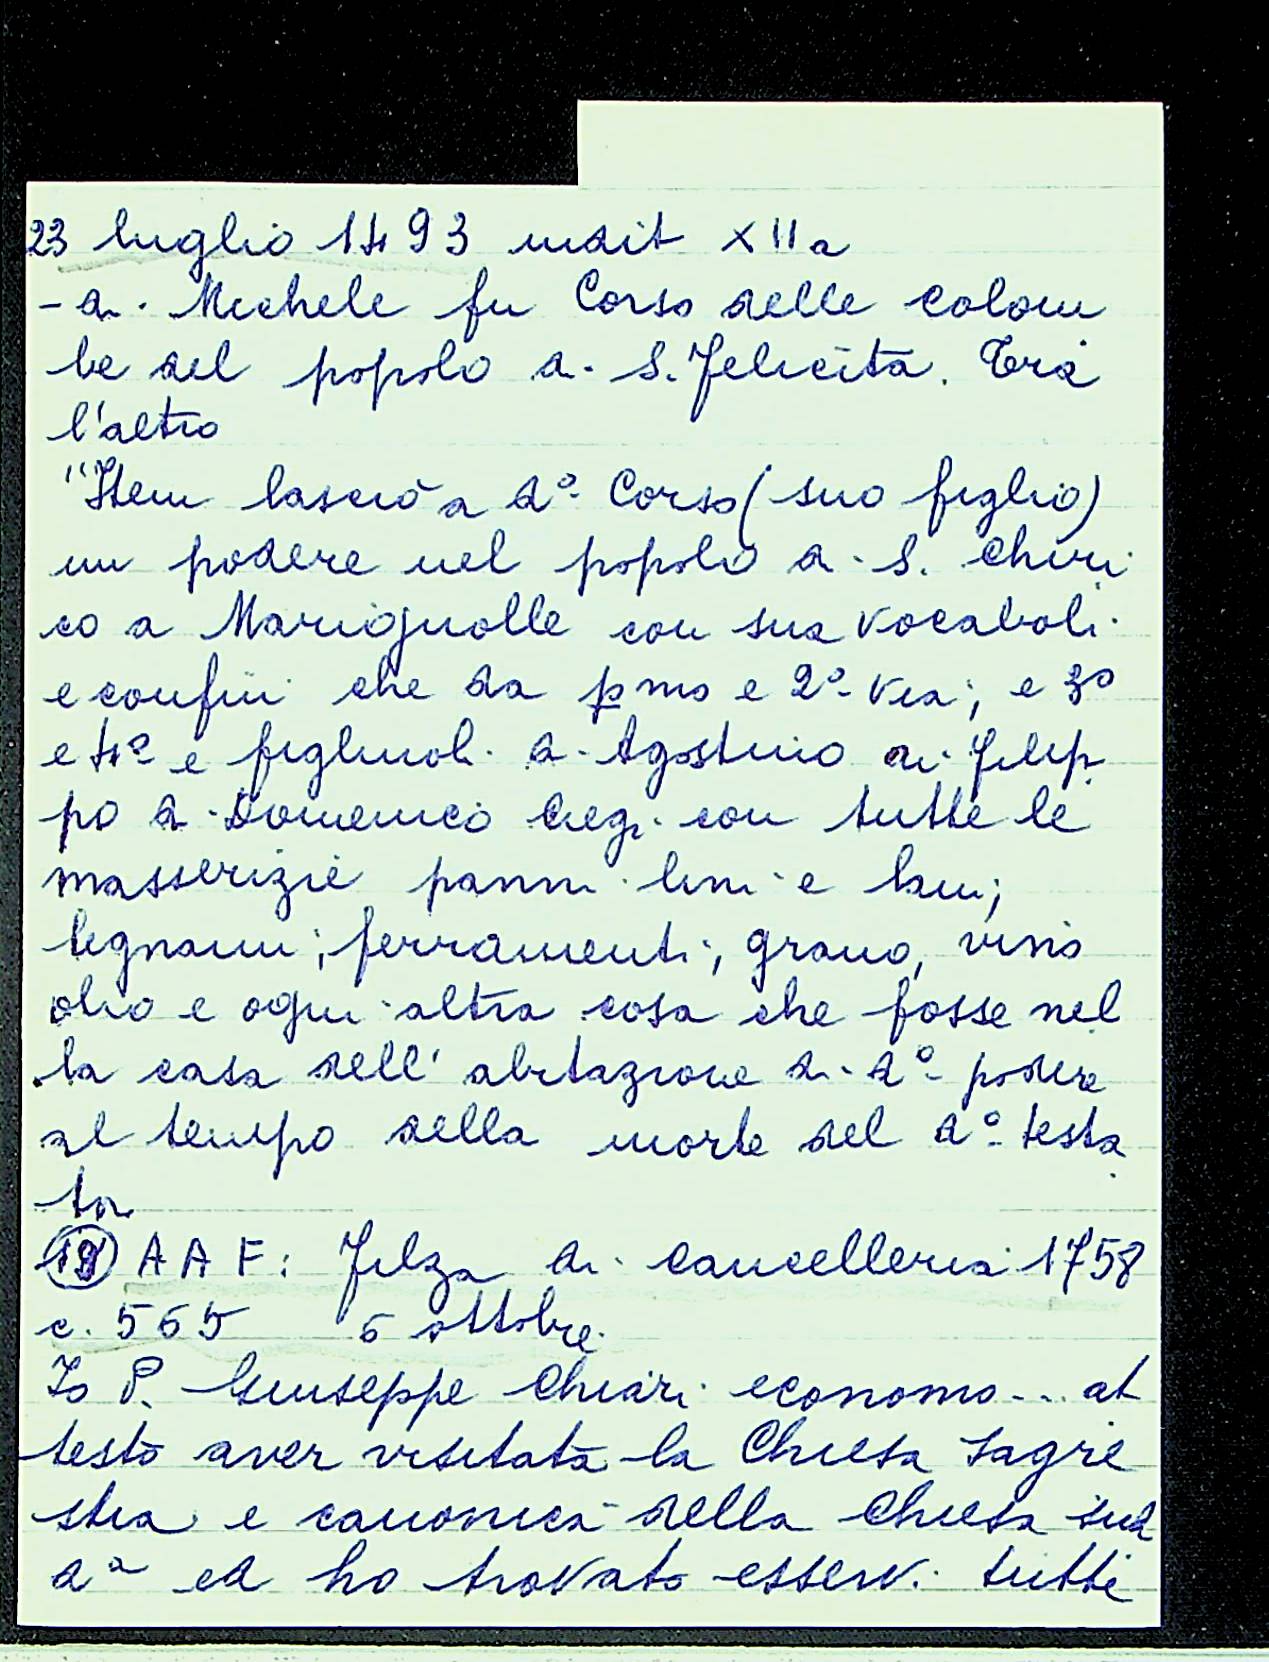 23 luglio 1493 indit XIIa
- di Michele fu Corso delle colom
be del popolo di S. Felicita. Tra
l'altro
"Item lasciò a d° Corso (suo figlio)
un podere nel popolo di S. Chiri
co a Marignolle con sua vocaboli
e confini che da pmo e 2° via; e 3°
e 4° e figliuoli di Agostino di Filip
po di Domenico con tutte le
masserizie panni lini e lani;
legnami; ferramenti; grano, vino
olio e ogni altra cosa che fosse nel
la casa dell' abitazione di d° podere
al tempo della morte del d° testa
tor
AAF: Filza di cancelleria 1758
c. 565 6 ottobre
Io P. Giuseppe Chiari economo... at
testo aver visitata la Chiesa sagre
stia e canonica della Chiesa sud
da ed ho trovato esservi tutti